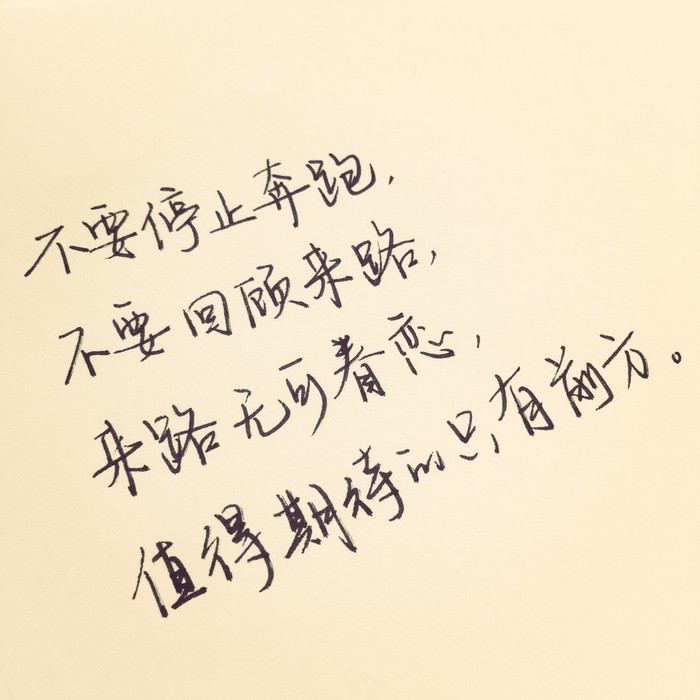 不要停止奔跑,
不要回顾来路,
来路无可眷恋,
值得期待的只有前方。